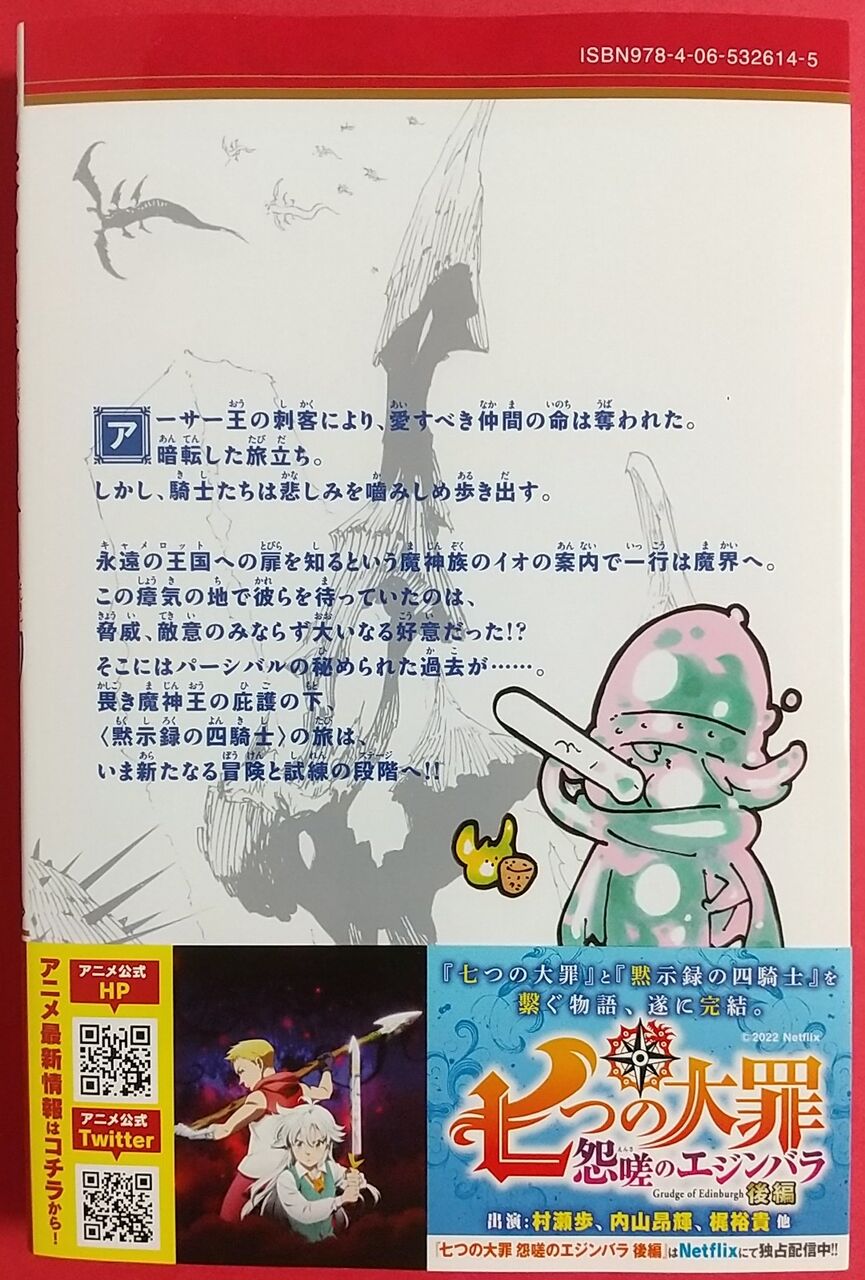 ISBN978-4-06-532614-5
アーサー王の刺客により、愛すべき仲間の命は奪われた。
暗転した旅立ち。
しかし、騎士たちは悲しみを嚙みしめ歩き出す。
永遠の王国への扉を知るという魔神族のイオの案内で一行は魔界へ。
この瘴気の地で彼らを待っていたのは、
脅威、敵意のみならず大いなる好意だった!?
そこにはパーシバルの秘められた過去が……。
畏き魔神王の庇護の下、
〈黙示録の四騎士〉の旅は、
いま新たなる冒険と試練の段階へ!!
アニメ最新情報はコチラから!
アニメ公式
HP
アニメ公式
Twitter
『七つの大罪』と『黙示録の四騎士』を
繫ぐ物語、遂に完結。
©2022 Netflix
七つの大罪
怨嗟のエジンバラ
Grudge of Edinburgh 後編
出演:村瀬歩、内山昂輝、梶裕貴 他
『七つの大罪 怨嗟のエジンバラ 後編』はNetflixにて独占配信中!!